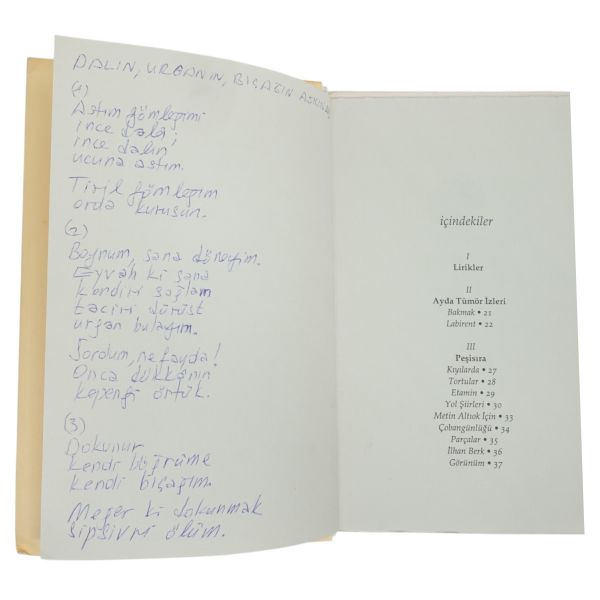 DALIN, URGANIN, BIÇAĞIN AŞKINA
(1)
Astım gömleğimi
ince dala!
ince dalın
ucuna astım.
Tiril gömleğim
orda kurusun.
(2)
Boynum, sana döneyim.
Eyvah ki sana
kendiri sağlam
taciri dürüst
urgan bulayım.
Sordum, ne fayda!
Onca dükkânın
kepengi örtük.
(3)
Dokunur
kendi böğrüme
kendi bıçağım.
Meğer ki dokunmak
sipsivri ölüm.
içindekiler
I
Lirikler
II
Ayda Tümör İzleri
Bakmak • 21
Labirent • 22
III
Peşisıra
Kıyılarda • 27
Tortular • 28
Etamin • 29
Yol Şiirleri • 30
Metin Altıok İçin • 33
Çobangünlüğü • 34
Parçalar • 35
İlhan Berk • 36
Görünüm • 37